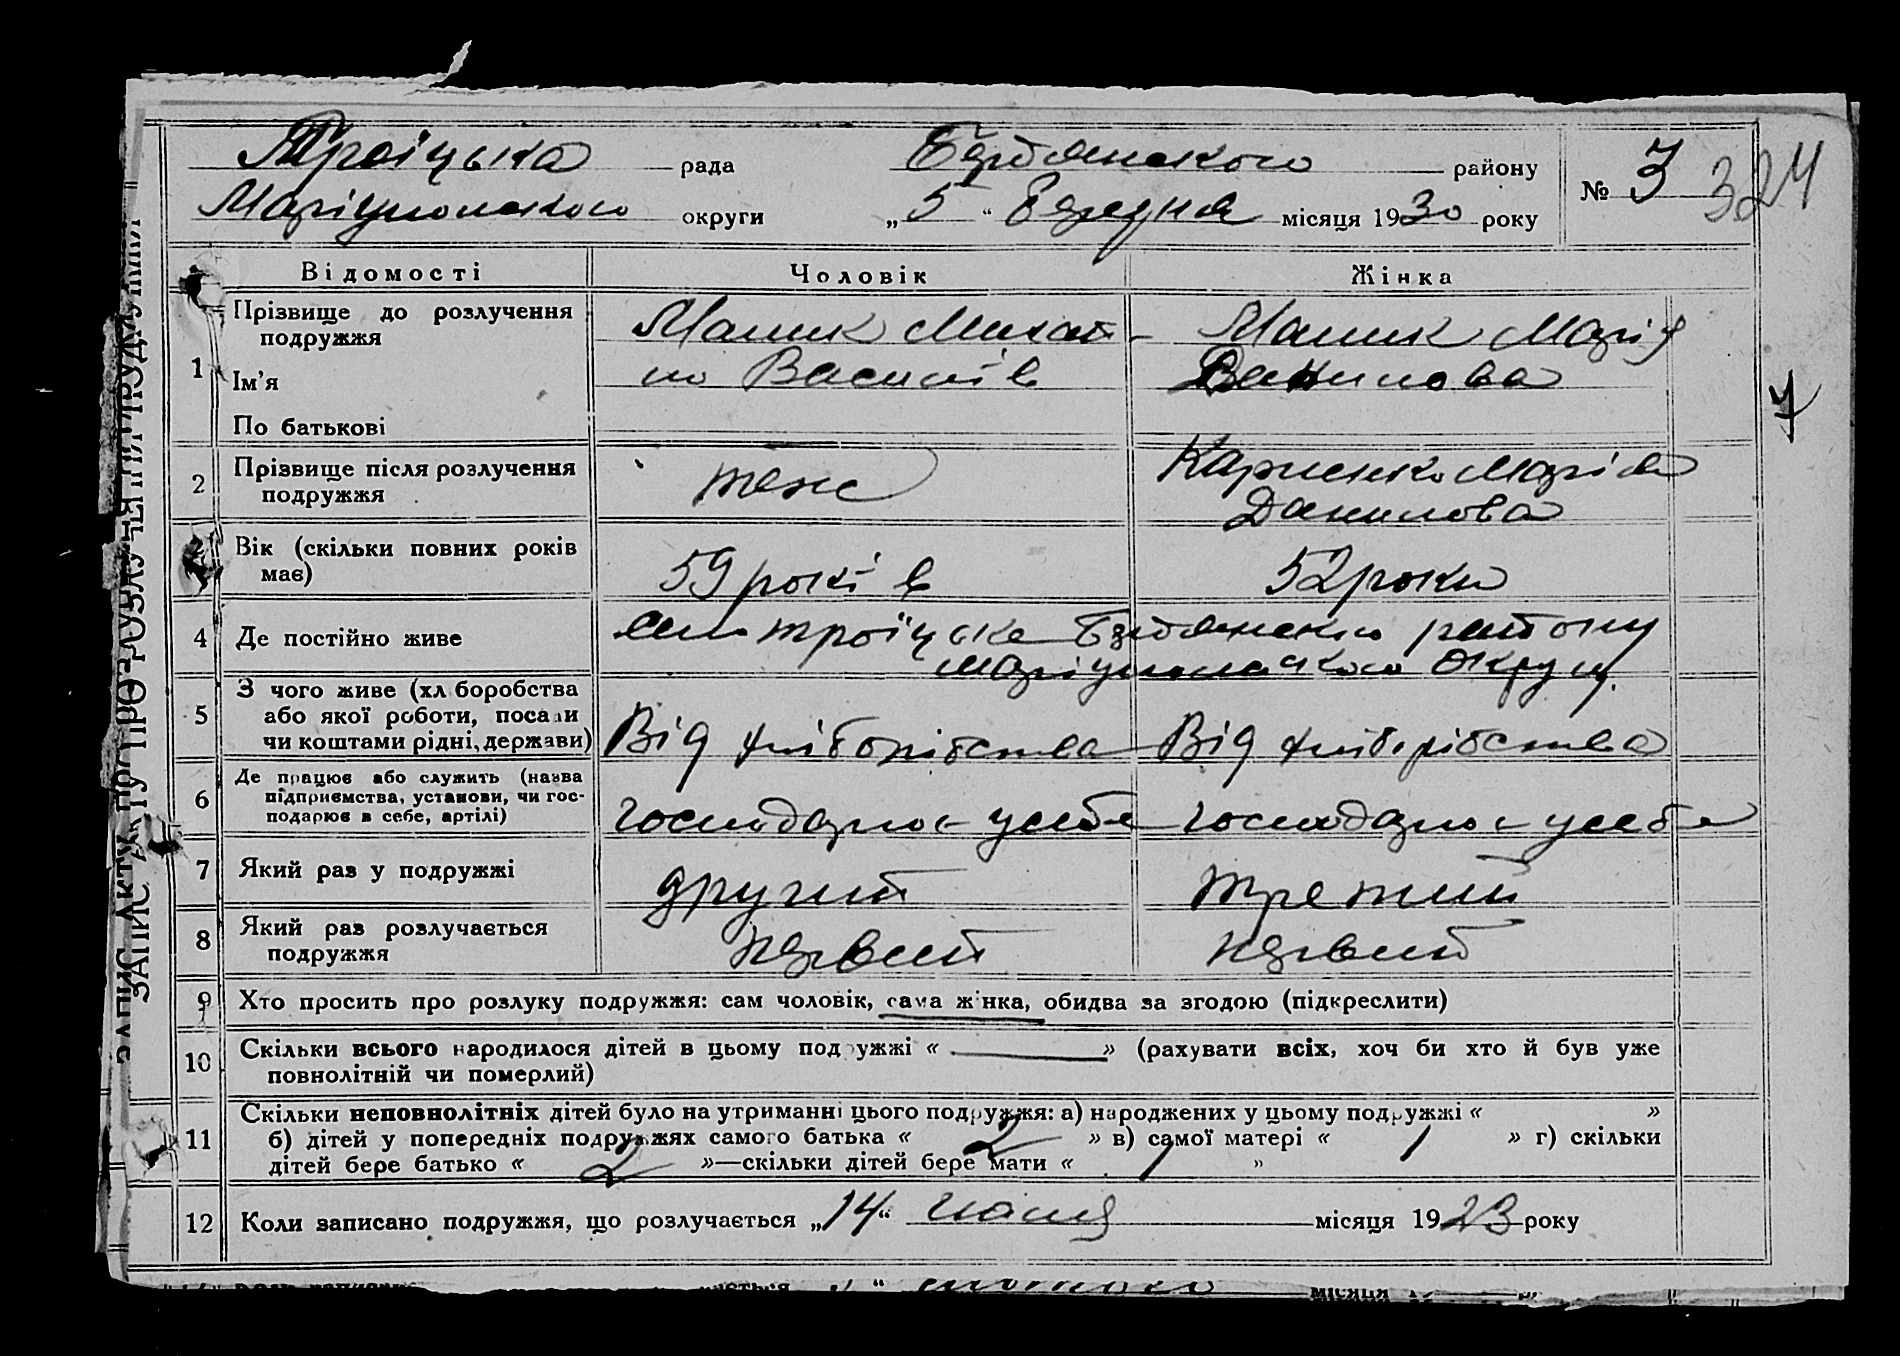 Троіцька рада Бердянського району № 3 324
Маріупольского округи „5“ Березня місяця 1930 року
ЗАПИС АКТУ ПРО РОЗЛУЧЕННЯ ПОДРУЖЖЯ
Відомості Чоловік Жінка
1 Прізвище до розлучення подружжя
Ім’я
По батькові
Малик Михай-
ло Василів
Малик Марія
Данилова
2 Прізвище після розлучення
подружжя
теж
Карпенко Марія
Данилова
Вік (скільки повних років
має)
59 років 52 роки
4 Де постійно живе село троїцьке Бердянського району
Маріупольського округи
5 З чого живе (хліборобства
або якої роботи, посади
чи коштами рідні, держави)
Від хліборобства Від хліборобства
6 Де працює або служить (назва
підприємства, установи, чи гос-
подарює в себе, артілі)
господарює у себе господарює у себе
7 Який раз у подружжі другий третий
8 Який раз розлучається
подружжя
первий первий
9 Хто просить про розлуку подружжя: сам чоловік, сама жінка, обидва за згодою (підкреслити)
10 Скільки всього народилося дітей в цьому подружжі « — » (рахувати всіх, хоч би хто й був уже
повнолітній чи померлий)
11 Скільки неповнолітніх дітей було на утриманні цього подружжя: а) народжених у цьому подружжі « »
б) дітей у попередніх подружжях самого батька « 2 » в) самої матері « 1 » г) скільки
дітей бере батько « 2 »—скільки дітей бере мати « 1 »
12 Коли записано подружжя, що розлучається „14“ місяця 1923 року